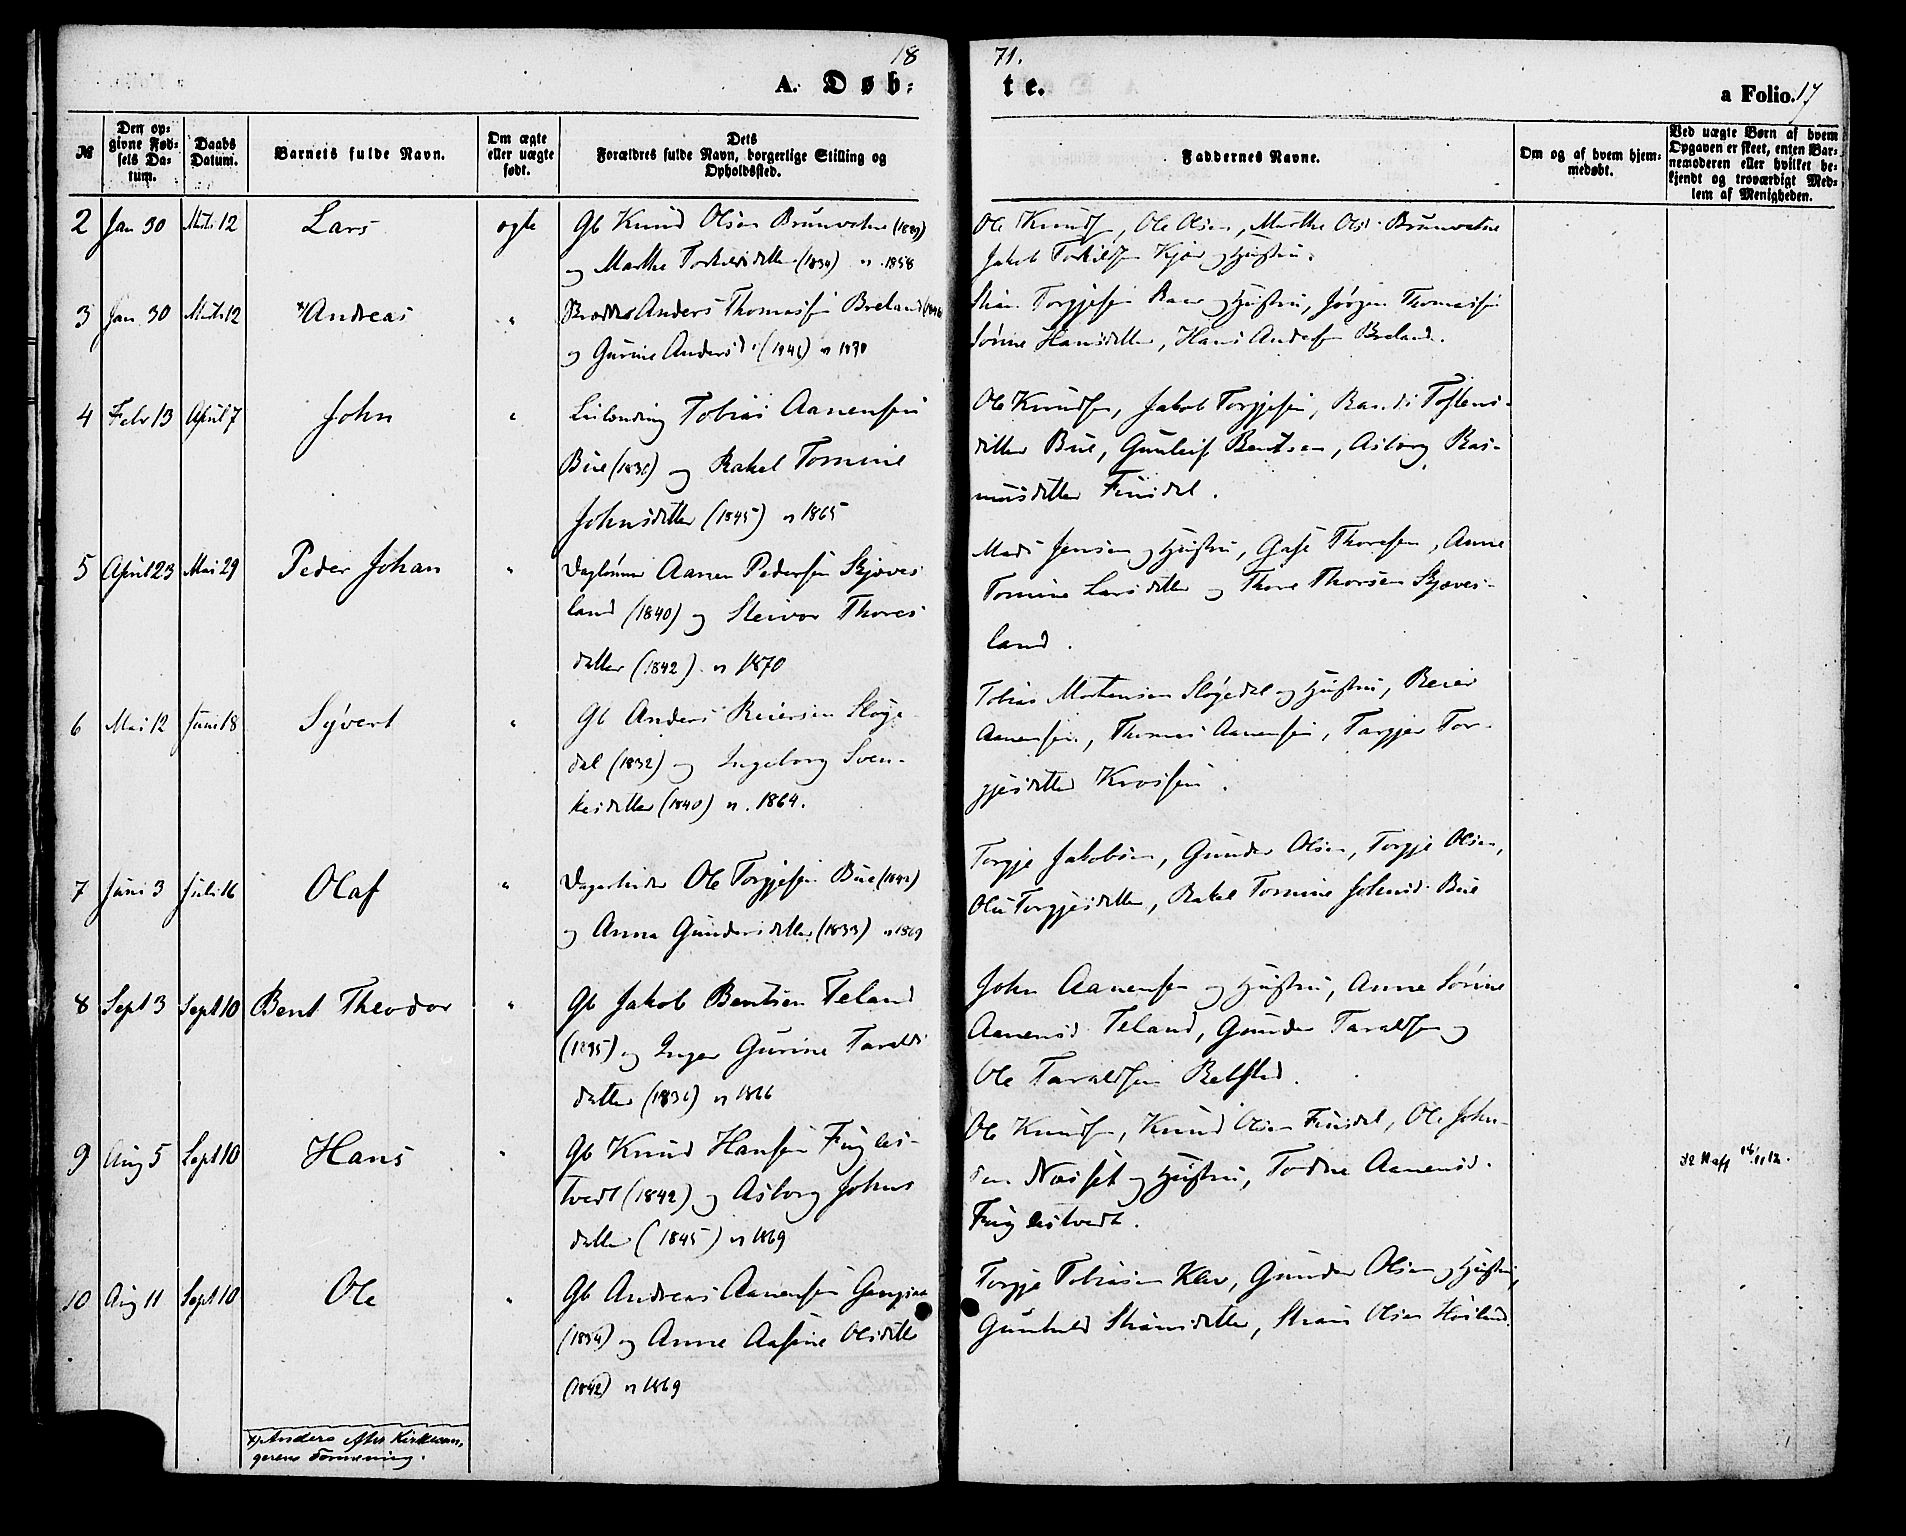 18 71.
A. Døb: te.
a Folio. 17
№
Den opgivne Fødsels Datum.
Daabs Datum.
Barnets fulde Navn.
Om ægte eller uægte født.
Dets Forældres fulde Navn, borgerlige Stilling og Opholdssted.
Faddernes Navne.
Om og af hvem hjemmedøbt.
Ved uægte Børn af hvem Opgaven er skeet, enten Barnemoderen eller hvilket bekjendt og troværdigt Medlem af Menigheden.
2 Jan 30 Mts 12 Lars ægte Gb Knud Olsen Brunvatne
og Marthe Torkildsdatter (1834) 1858
Ole Knudsen, Ole Olsen, Marthe Olsd. Brunvatne
Jakob Torkildsen Kjær og Hustru.
3 Jan 30 Mts 12 x) Andreas " Anders Thomassen Breland
og Gurine Andersd. (1846) 1870
Torgjesen og Hustru, Jørgen Thomassen
Sørine Hansdatter, Hans Andersen Breland.
4 Febr 13 April 7 John " Leilending Tobias Aanensen
Bue (1836) og Rakel Tomine
Johnsdatter (1845) 1865
Ole Knudsen, Jakob Torgjesen, Randi Toftens-
datter Bue, Gunleif Bentsen, Asborg Ras-
musdatter Finsdal.
5 April 23 Mai 29 Peder Johan " Daglønner Aanen Pedersen Skjæves
land (1840) og Steivor Thores
datter (1842) 1870
Mads Jensen og Hustru, Thoresen, Anne
Tomine Larsdatter og Thore Thorsen Skjæves-
land.
6 Mai 12 Juni 18 Syvert " Gb Anders Reiersen Sløge
dal (1832) og Ingeborg Sven-
kesdatter (1840) 1864.
Tobias Mortensen Sløgedal og Hustru, Reier
Aanensen, Thomas Aanensen, Torgjer Tor-
gjesdatter Krossen.
7 Juni 3 Juli 16 Olaf " Dagarbeider Ole Torgjesen Bue (1842)
og Anna Gundersdatter (1833) 1869
Torgje Jakobsen, Gunder Olsen, Torgje Olsen,
Torgjesdatter, Rakel Tomine Johnsd. Bue
8 Sept 3 Sept 10 Bent Theodor " Gb Jakob Bentsen Teland
(1835) og Inger Gurine Taralds
datter (1836) 1866
John Aanensen og Hustru, Anne Sørine
Aanensd. Teland, Gunder Taraldsen og
Ole Taraldsen Relsted.
9 Aug 5 Sept 10 Hans " Gb Knud Hansen Fugles-
tvedt (1842) og Asborg Johns
datter (1845) 1869
Ole Knudsen, Knud Olsen Finsdal, Ole John-
sen Næsset og Hustru, Todne Aanensd.
Fuglestvedt.
10 Aug 11 Sept 10 Ole " Gb Andreas Aanensen
(1834) og Anne Aasine Olsdatter
(1842) 1869
Torgje Tobiasen Klev, Gunder Olsen og Hustru,
Gunhild Stiansdatter, Olsen Høiland.
x) Anders efter Kirkesan-
gerens Formening.